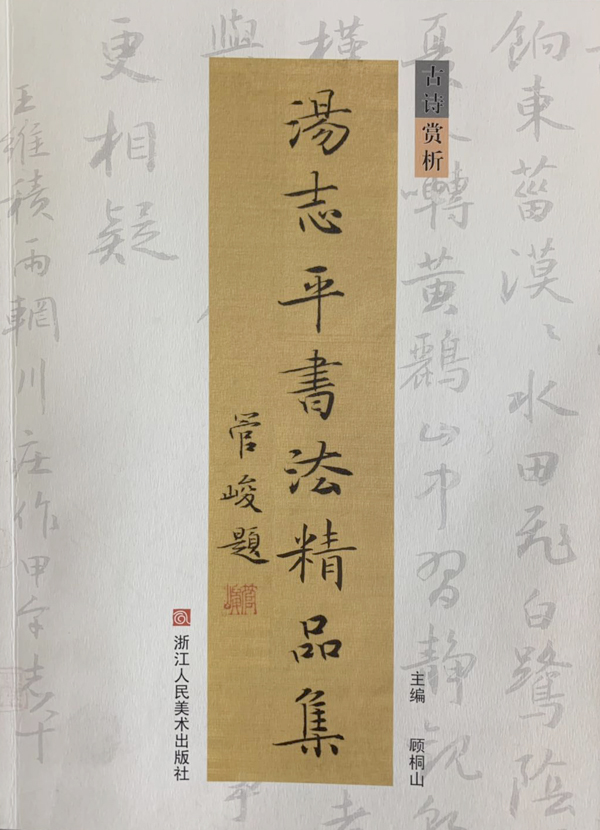 古诗赏析
湯志平書法精品集
管峻題
主编 顾桐山
浙江人民美术出版社
餉東菑漠〻水田飛白鷺陰
夏木囀黄鸝山中習静觀
更相疑
王維積雨輞川庄作甲午志平